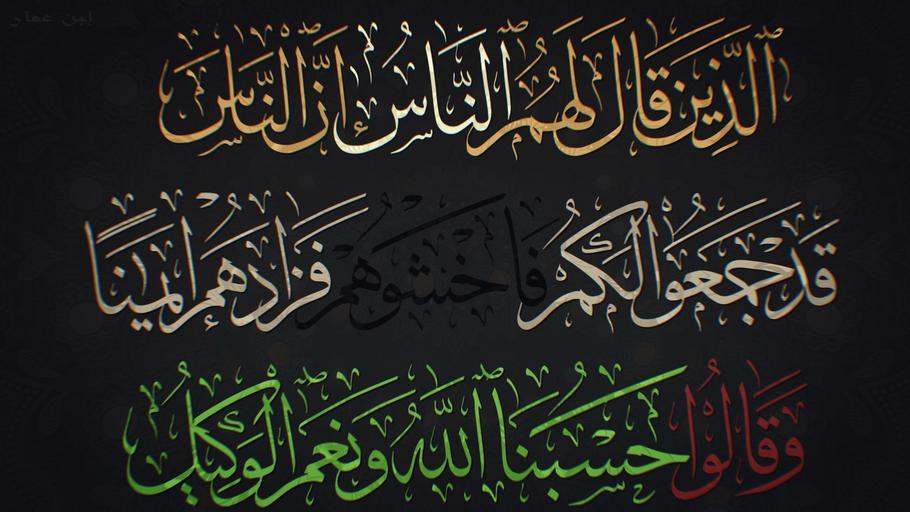 ابن عمار
الَّذِينَ قَالَ لَهُمُ النَّاسُ إِنَّ النَّاسَ
قَدْ جَمَعُوا لَكُمْ فَاخْشَوْهُمْ فَزَادَهُمْ إِيمَٰنًا
وَقَالُوا حَسْبُنَا اللَّهُ وَنِعْمَ الْوَكِيلُ